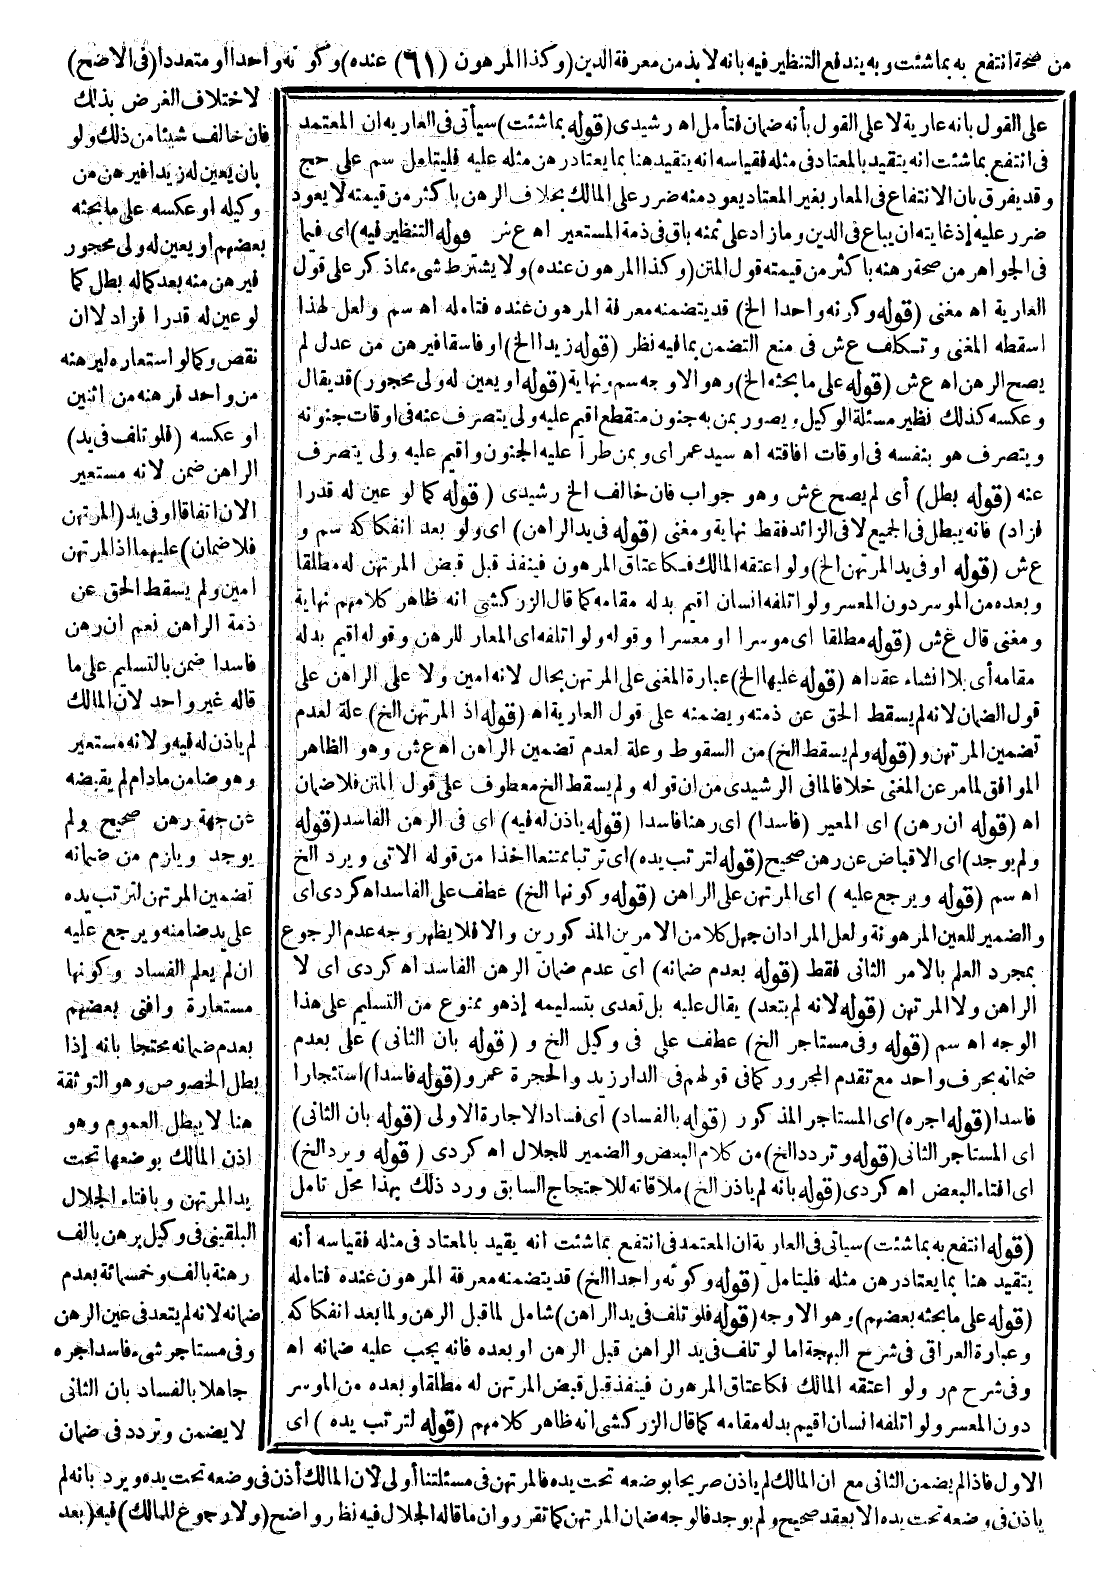 من صحة انتفع به بما شئت وبه يندفع التنظير فيه بانه لا بد من معرفة الدين (وكذا المرهون (٦١) عنده) وكونه واحدا او متعددا (فى الاضح)
لاختلاف الغرض بذلك
فان خالف شيئا من ذلك ولو
بان يعين له زيدا فيرهن من
وكيله او عكسه على ما بحثه
بعضهم او يعين له ولى محجور
فيرهن منه بعد كماله بطل كما
لو عين له قدرا فزاد لا ان
نقص وكما لو استعاره ليرهنه
من واحد فرهنه من اثنين
او عكسه (فلو تلف فى يد)
الراهن ضمن لانه مستعير
الان اتفاقا او فى يد (المرتهن
فلا ضمان) عليهما اذ المرتهن
امين ولم يسقط الحق عن
ذمة الراهن نعم ان رهن
فاسدا ضمن بالتسليم على ما
قاله غير واحد لان المالك
لم ياذن له فيه ولانه مستعير
وهو ضامن ما دام لم يقبضه
عن جهة رهن صحيح ولم
يوجد ويلزم من ضمانه
تضمين المرتهن لترتب يده
على يد ضامنه ويرجع عليه
ان لم يعلم الفساد وكونها
مستعارة وافتى بعضهم
بعدم ضمانه محتجا بانه إذا
بطل الخصوص وهو التوثقة
هنا لا يبطل العموم وهو
اذن المالك بوضعها تحت
يد المرتهن وبافتاء الجلال
البلقينى فى وكيل يرهن بالف
رهنه بالف وخمسمائة بعدم
ضمانه لانه لم يتعد فى عين الرهن
وفى مستاجر شىء فاسدا اجره
جاهلا بالفساد بان الثانى
لا يضمن وتردد فى ضمان
الاول فاذا لم يضمن الثانى مع ان المالك لم ياذن صريحا بوضعه تحت يده فالمرتهن فى مسئلتنا أولى لان المالك أذن فى وضعه تحت يده ويرد بانه لم
ياذن فى وضعه تحت يده الا بعقد صحيح ولم يوجد فالوجه ضمان المرتهن كما تقرر وان ما قاله الجلال فيه نظر واضح (ولا رجوع للمالك) فيه (بعد
على القول بانه عارية لا على القول بأنه ضمان فتأمل اه رشيدى (قوله بما شئت) سيأتى فى العارية ان المعتمد
فى انتفع بما شئت انه يتقيد بالمعتاد فى مثله فقياسه انه يتقيد هنا بما يعتاد رهن مثله عليه فليتامل سم على حج
وقد يفرق بان الانتفاع فى المعار بغير المعتاد يعود منه ضرر على المالك بخلاف الرهن با كثر من قيمته لا يعود
ضرر عليه إذ غايته ان يباع فى الدين وما زاد على ثمنه باق فى ذمة المستعير اه ع ش قوله التنظير فيه) اى فيما
فى الجواهر من صحة رهنه با كثر من قيمته قول المتن (وكذا المرهون عنده) ولا يشترط شىء مما ذكر على قول
العارية اه مغنى (قوله وكونه واحدا الخ) قد يتضمنه معرفة المرهون عنده فتامله اه سم ولعل لهذا
اسقطه المغنى وتكلف ع ش فى منع التضمن بما فيه نظر (قوله زيدا الخ) او فاسقا فيرهن من عدل لم
يصح الرهن اه ع ش (قوله على ما بحثه الخ) وهو الاوجه سم ونهاية (قوله او يعين له ولى محجور) قد يقال
وعكسه كذلك نظير مسئلة الوكيل ويصور بمن به جنون متقطع اقيم عليه ولى يتصرف عنه فى اوقات جنونه
ويتصرف هو بنفسه فى اوقات افاقته اه سيد عمر اى وبمن طرأ عليه الجنون واقيم عليه ولى يتصرف
عنه (قوله بطل) أى لم يصح ع ش وهو جواب فان خالف الخ رشيدى (قوله كما لو عين له قدرا
فزاد) فانه يبطل فى الجميع لا فى الزائد فقط نهاية ومغنى (قوله فى يد الراهن) اى ولو بعد انفكا كه سم و
ع ش (قوله او فى يد المرتهن الخ) ولو اعتقه المالك فكاعتاق المرهون فينفذ قبل قبض المرتهن له مطلقا
وبعده من الموسر دون المعسر ولو اتلفه انسان اقيم بدله مقامه كما قال الزركشى انه ظاهر كلامهم نهاية
ومغنى قال ع ش (قوله مطلقا اى موسرا او معسرا وقوله ولو اتلفه اى المعار للرهن وقوله اقيم بدله
مقامه أى بلا انشاء عقد اه (قوله عليها الخ) عبارة المغنى على المرتهن بحال لانه امين ولا على الراهن على
قول الضمان لانه لم يسقط الحق عن ذمته ويضمنه على قول العارية اه (قوله اذ المرتهن الخ) علة لعدم
تضمين المرتهن و (قوله ولم يسقط الخ) من السقوط وعلة لعدم تضمين الراهن اه ع ش وهو الظاهر
الموافق لما مر عن المغنى خلافا لما فى الرشيدى من ان قوله ولم يسقط الخ معطوف على قول المتن فلا ضمان
اه (قوله ان رهن) اى المعير (فاسدا) اى رهنا فاسدا (قوله ياذن له فيه) اي فى الرهن الفاسد (قوله
ولم يوجد) اى الاقباض عن رهن صحيح (قوله لترتب يده) اى ترتبا ممتنعا اخذا من قوله الاتى ويرد الخ
اه سم (قوله ويرجع عليه) اى المرتهن على الراهن (قوله وكونها الخ) عطف على الفاسد اه كردى اى
والضمير للعين المرهونة ولعل المراد ان جهل كلا من الامرين المذكورين والا فلا يظهر وجه عدم الرجوع
بمجرد العلم بالامر الثانى فقط (قوله بعدم ضمانه) اى عدم ضمان الرهن الفاسد اه كردى اى لا
الراهن ولا المرتهن (قوله لانه لم يتعد) يقال عليه بل تعدى بتسليمه إذ هو ممنوع من التسليم على هذا
الوجه اه سم (قوله وفى مستاجر الخ) عطف على فى وكيل الخ و (قوله بان الثانى) على بعدم
ضمانه بحرف واحد مع تقدم المجرور كما فى قولهم فى الدار زيد والحجرة عمرو (قوله فاسدا) استئجارا
فاسدا (قوله اجره) اى المستاجر المذكور (قوله بالفساد) اى فساد الاجارة الاولى (قوله بان الثانى)
اى المستاجر الثانى (قوله وتردد الخ) من كلام البعض والضمير للجلال اه كردى (قوله ويرد الخ)
اى افتاء البعض اه كردى (قوله بانه لم ياذن الخ) ملاقاته للاحتجاج السابق ورد ذلك بهذا محل تامل
(قوله انتفع به بما شئت) سياتى فى العارية ان المعتمد فى انتفع بما شئت انه يقيد بالمعتاد فى مثله فقياسه أنه
يتقيد هنا بما يعتاد رهن مثله فليتامل (قوله وكونه واحدا الخ) قد يتضمنه معرفة المرهون عنده فتامله
(قوله على ما بحثه بعضهم) وهو الاوجه (قوله فلو تلف فى يد الراهن) شامل لما قبل الرهن ولما بعد انفكا كه
وعبارة العراقى فى شرح البهجة اما لو تلف فى يد الراهن قبل الرهن او بعده فانه يجب عليه ضمانه اه
وفى شرح م ر ولو اعتقه المالك فكاعتاق المرهون فينفذ قبل قبض المرتهن له مطلقا وبعده من الموسر
دون المعسر ولو اتلفه انسان اقيم بدله مقامه كما قال الزركشى انه ظاهر كلامهم (قوله لترتب يده) اى